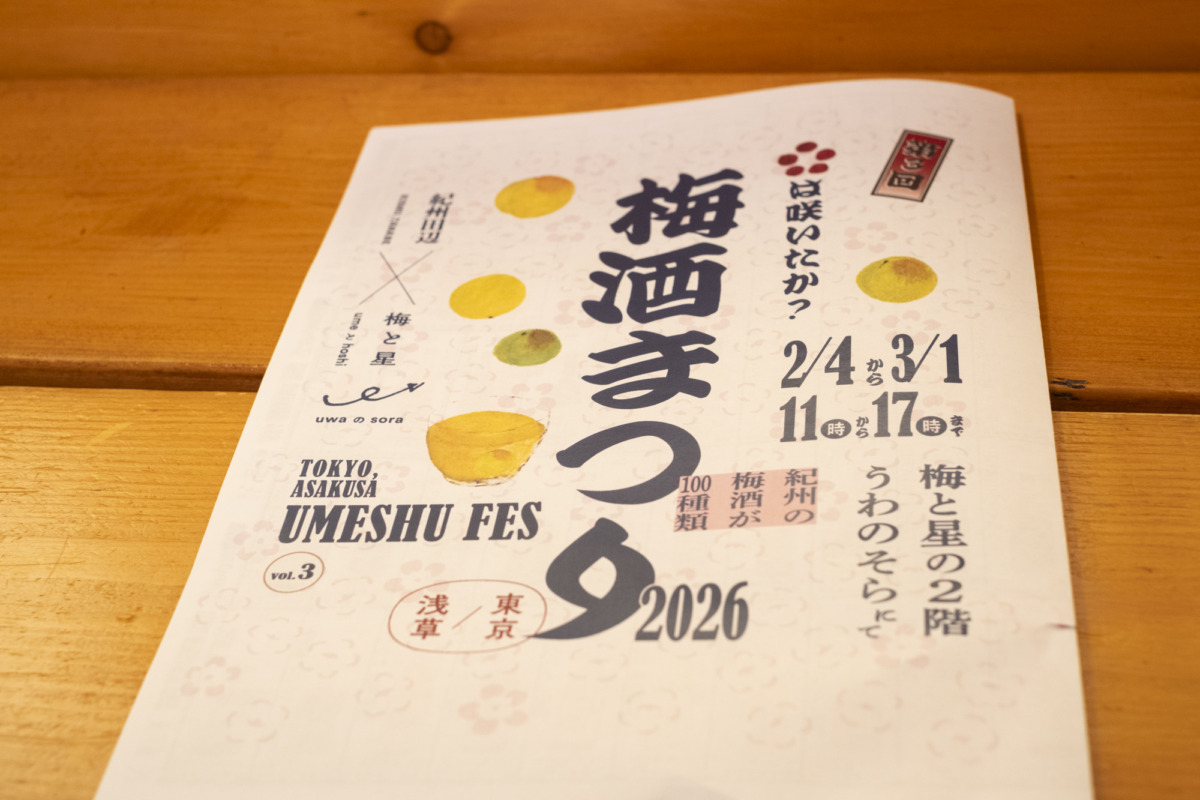 第3回
は咲いたか?
2/4から3/1
11時から17時まで
梅と星の2階
うわのそらにて
梅酒まつり
2026
紀州の
梅酒が
100種類
紀州田辺
梅と星
ume と hoshi
uwa の sora
TOKYO,
ASAKUSA
UMESHU FES
vol.3
東京
浅草